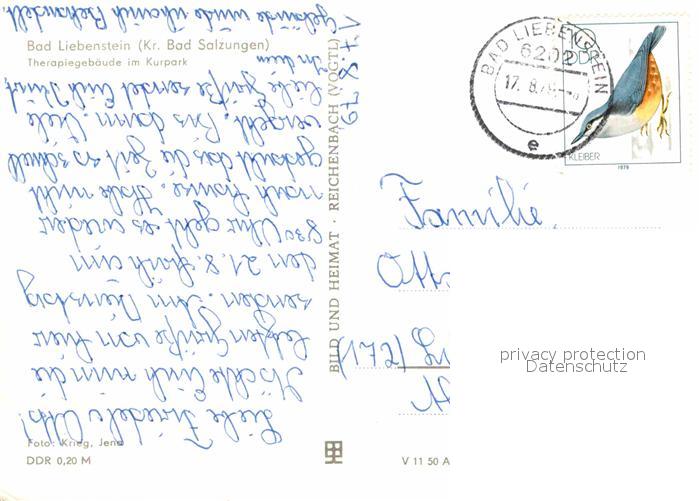 Bad Liebenstein (Kr. Bad Salzungen)
Therapiegebäude im Kurpark
17.8.79
Liebe Friedel u. Otto!
Möchte Euch nun die
letzten Grüße von hier
senden. Am Dienstag
den 21.8. früh um
8³⁰ Uhr geht es wieder
nach Hause. Hätte nicht
gedacht das die Zeit so schnell
vergeht. Bis dann. Viele
liebe Grüße sendet Euch
In dem
Gebäude wurde ich Behandelt.
Foto: Krieg, Jena
DDR 0,20 M
BILD UND HEIMAT · REICHENBACH (VOGTL)
V 11 50 A
BAD LIEBENSTEIN
6202
17. 8. 79
e
DDR
KLEIBER
1979
Familie
privacy protection
Datenschutz